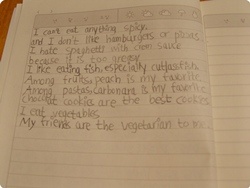 I can't eat anything spicy.
and I don't like hamburgers or pizzas.
I hate spaghetti with clam sauce
because it is too greasy.
I like eating fish, especially cutlassfish.
Among fruits, peach is my favorite.
Among pastas, carbonara is my favorite.
Chocolat cookies are the best cookies.
I eat vegetables.
My friends are the vegetarian to me.